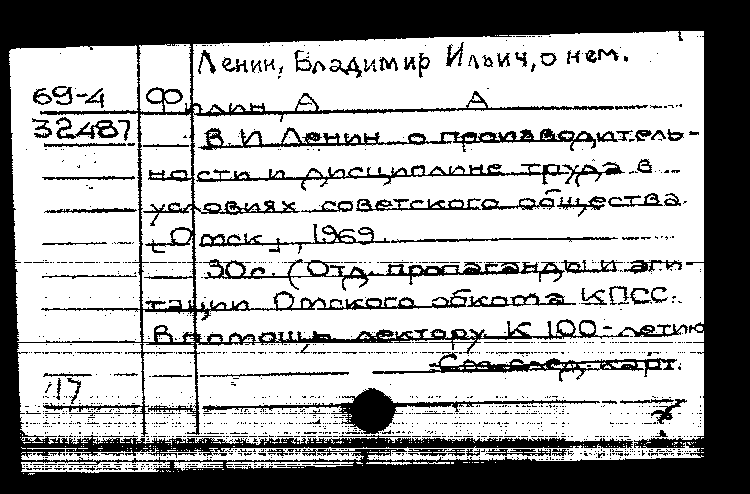 Ленин, Владимир Ильич, о нем.
69-4 Филин, А А
32487 В.И Ленин о производитель-
ности и дисциплине труда в
условиях советского общества.
[Омск], 1969.
30с. (Отд. пропаганды и аги-
тации Омского обкома КПСС.
В помощь лектору. К 100-летию
См. след. карт.
17